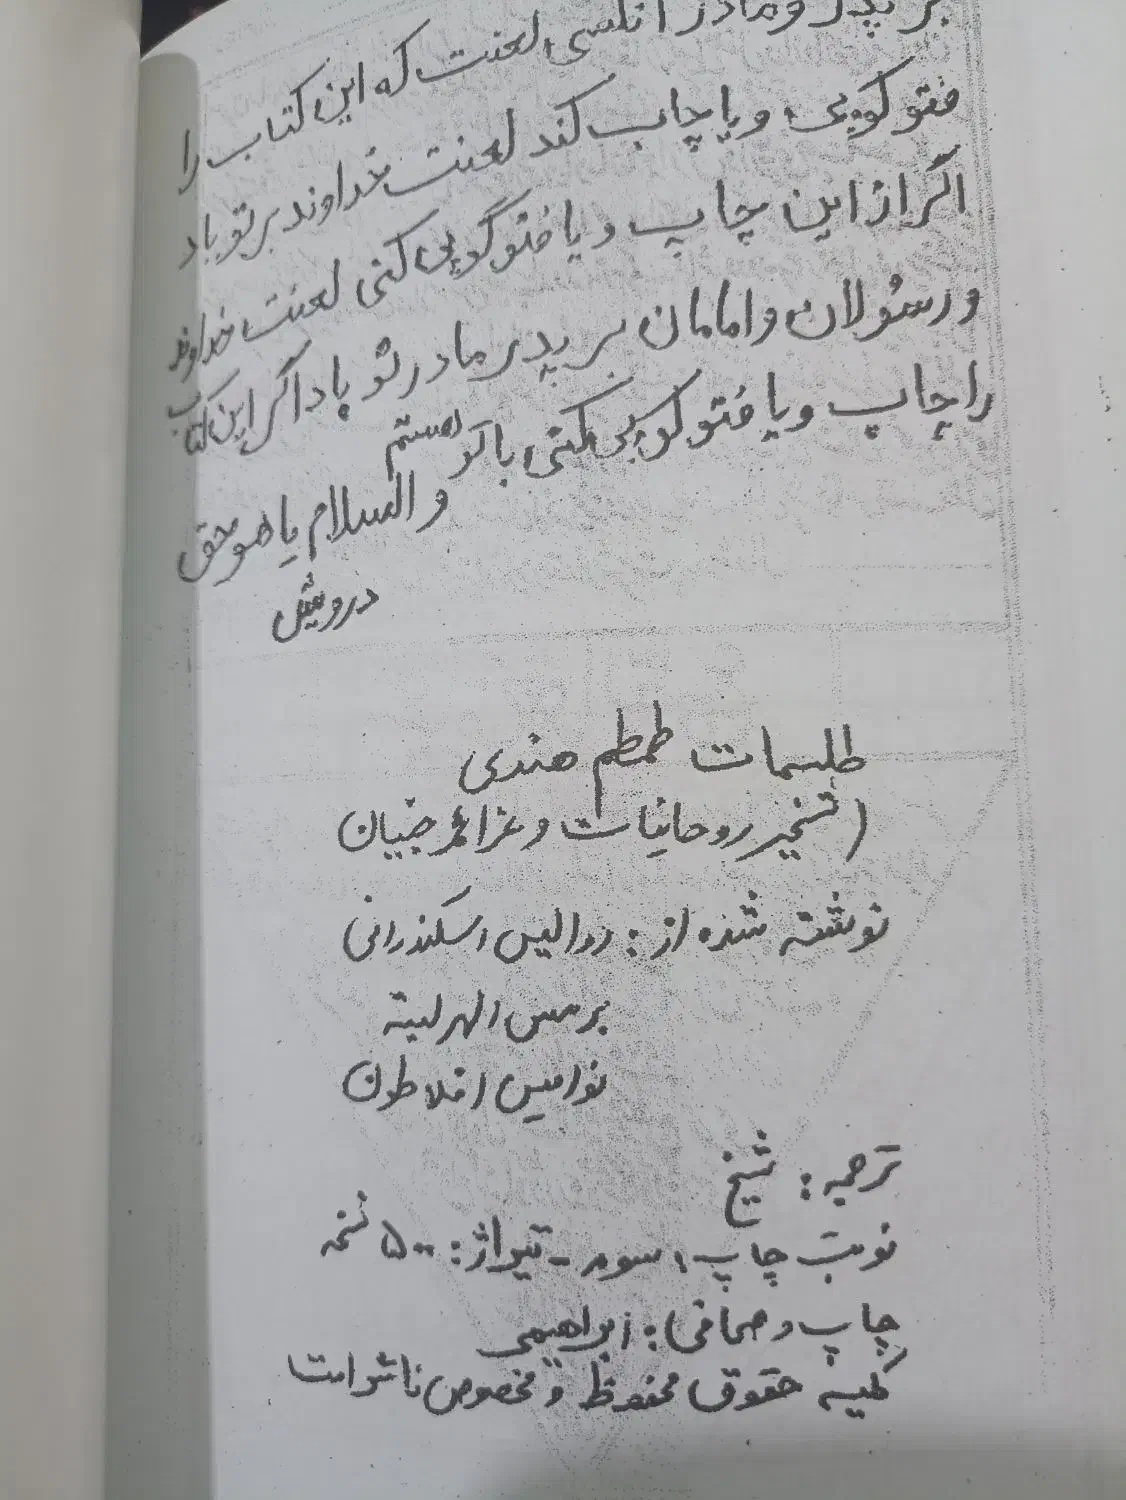 بر پدر و مادر انکسی لعنت که این کتاب را
فتوکوپی و یا چاپ کند لعنت خداوند بر تو باد
اگر از این چاپ و یا فتوکوپی کنی لعنت خداوند
و رسولان و امامان بر پدر مادر تو باد اگر این کتاب
را چاپ و یا فتوکوپی کنی با تو هستم
و السلام یا هو حق
درویش
طلسمات طمطم هندی
(تسخیر روحانیات و عزائم جنیان
نوشته شده از: روالیس اسکندرانی
برمس الهرلیته
نوامیس افلاطون
ترجمه: شیخ
نوبت چاپ: سوم - تیراژ: ۵۰۰ نسخه
چاپ و صحافی: ابراهیمی
کلیه حقوق محفوظ و مخصوص ناشر است